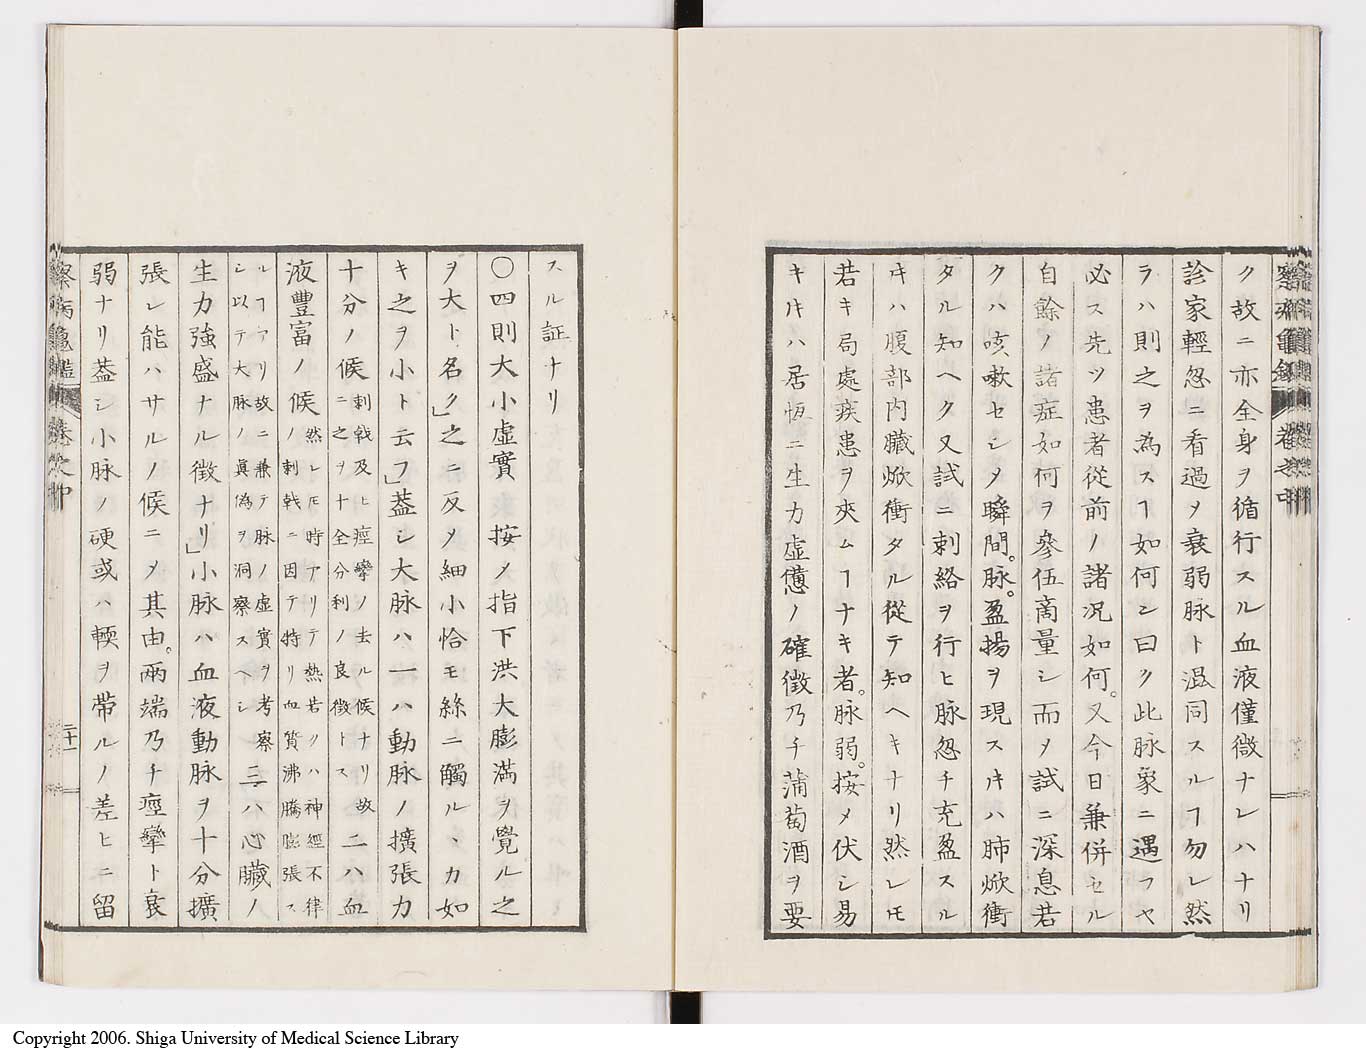 ク故ニ亦全身ヲ循行スル血液僅微ナレハナリ
診家輕忽ニ看過メ衰弱脉ト混同スルヿ勿レ然
ラハ則之ヲ為スヿ如何ン曰ク此脉象ニ遇フヤ
必ス先ツ患者從前ノ諸况如何。又今日兼併セル
自餘ノ諸症如何ヲ參伍商量シ而メ試ニ深息若
クハ咳嗽セシメ瞬間。脉。盈揚ヲ現スキハ肺焮衝
タル知ヘク又試ニ刺絡ヲ行ヒ脉忽チ充盈スル
キハ腹部内臓焮衝タル從テ知ヘキナリ然レ𪜈
若キ局處疾患ヲ夾ムヿナキ者。脉弱。按メ伏シ易
キキハ居恆ニ生力虚憊ノ確徴乃チ蒲萄酒ヲ要
スル証ナリ
〇四則大小虚實 按メ指下洪大膨滿ヲ覺ル之
ヲ大ト名ク」之ニ反メ細小恰モ絲ニ觸ルヽカ如
キ之ヲ小ト云フ」葢シ大脉ハ一ハ動脉ノ擴張力
十分ノ候刺戟及ヒ痙攣ノ去ル候ナリ故ニ之ヲ十全分利ノ良徴トス二ハ血
液豐富ノ候然レ𪜈時アリテ熱若クハ神經不律ノ刺戟ニ因テ特リ血質沸騰膨張ス
ルヿアリ故ニ兼テ脉ノ虚實ヲ考察シ以テ大脉ノ眞偽ヲ洞察スヘシ三ハ心臓ノ
生力強盛ナル徴ナリ」小脉ハ血液動脉ヲ十分擴
張レ能ハサルノ候ニメ其由。兩端乃チ痙攣ト衰
弱ナリ葢シ小脉ノ硬或ハ輭ヲ帶ルノ差ヒニ留
察病龜鑑 卷之中
二十一
Copyright 2006. Shiga University of Medical Science Library